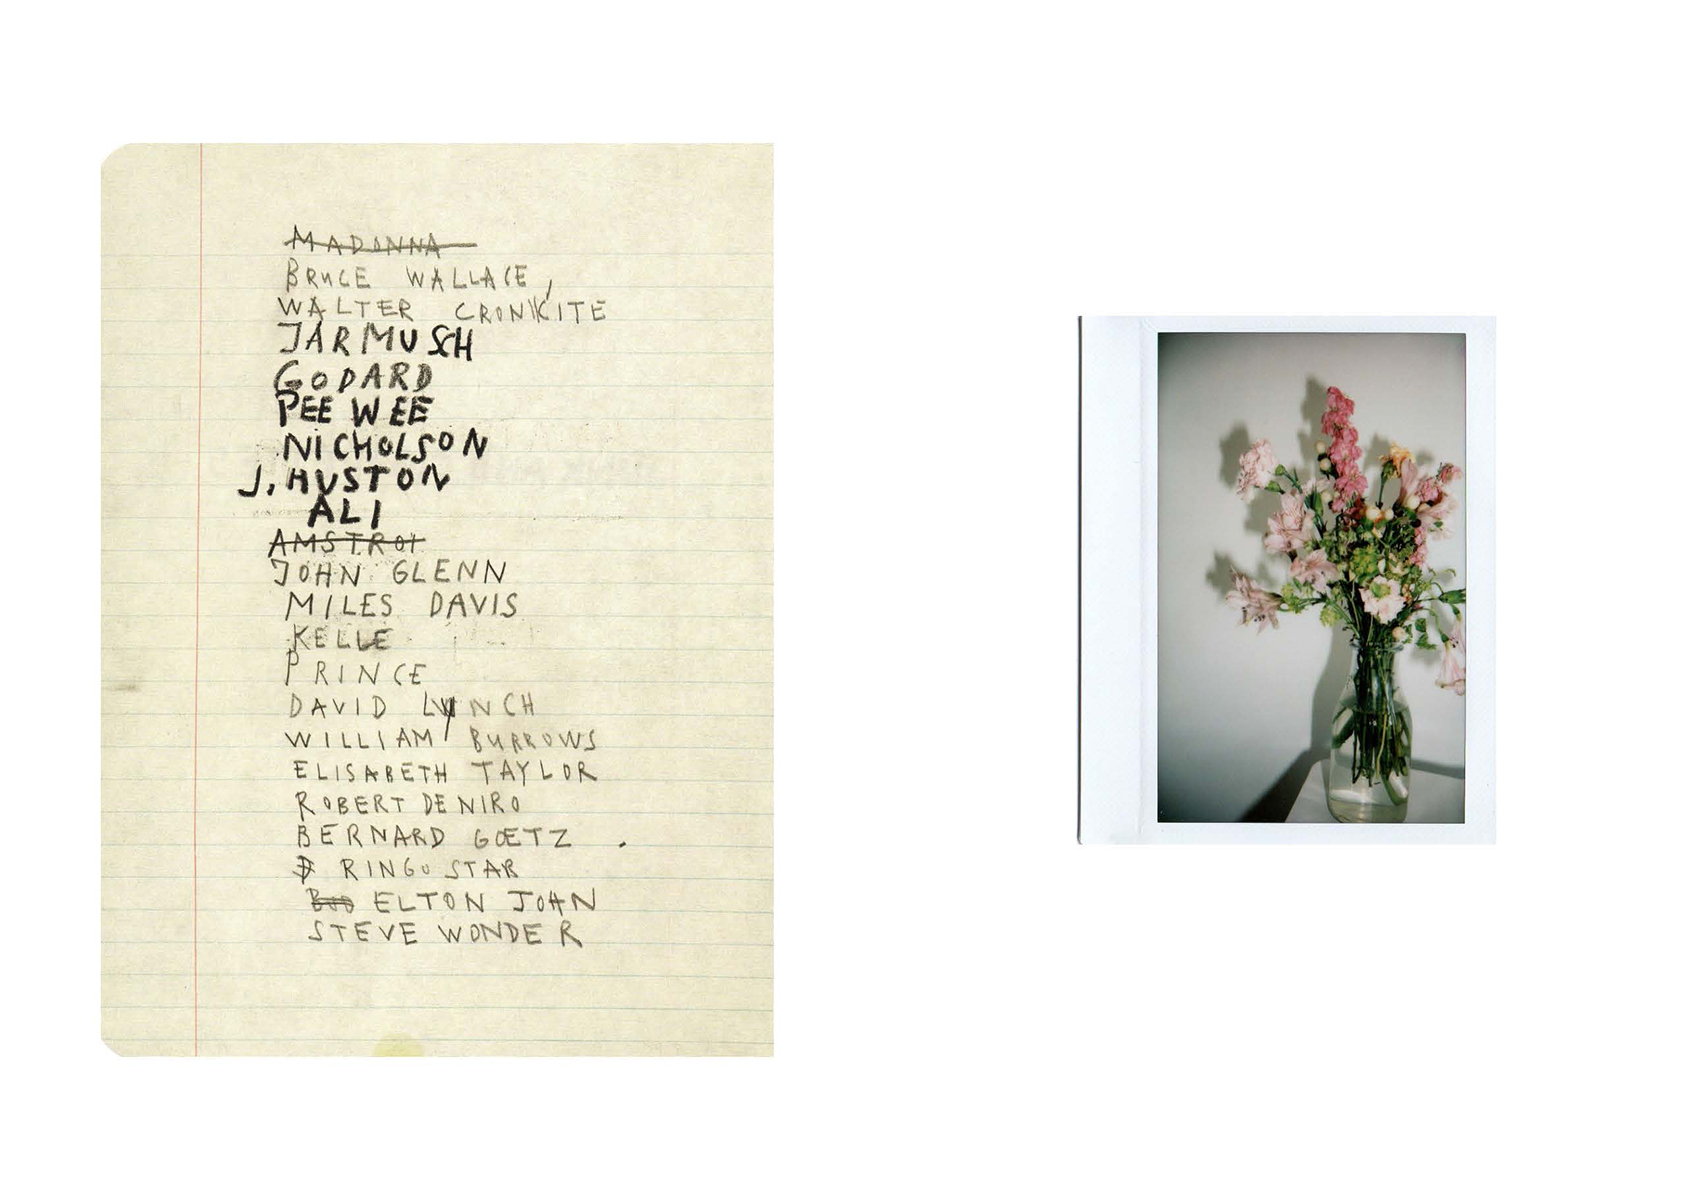 MADONNA
BRUCE WALLACE,
WALTER CRONKITE
JARMUSCH
GODARD
PEE WEE
NICHOLSON
J. HUSTON
ALI
AMSTROI
JOHN GLENN
MILES DAVIS
KELLE
PRINCE
DAVID LYNCH
WILLIAM BURROWS
ELISABETH TAYLOR
ROBERT DE NIRO
BERNARD GOETZ .
RINGO STAR
ELTON JOHN
STEVE WONDER